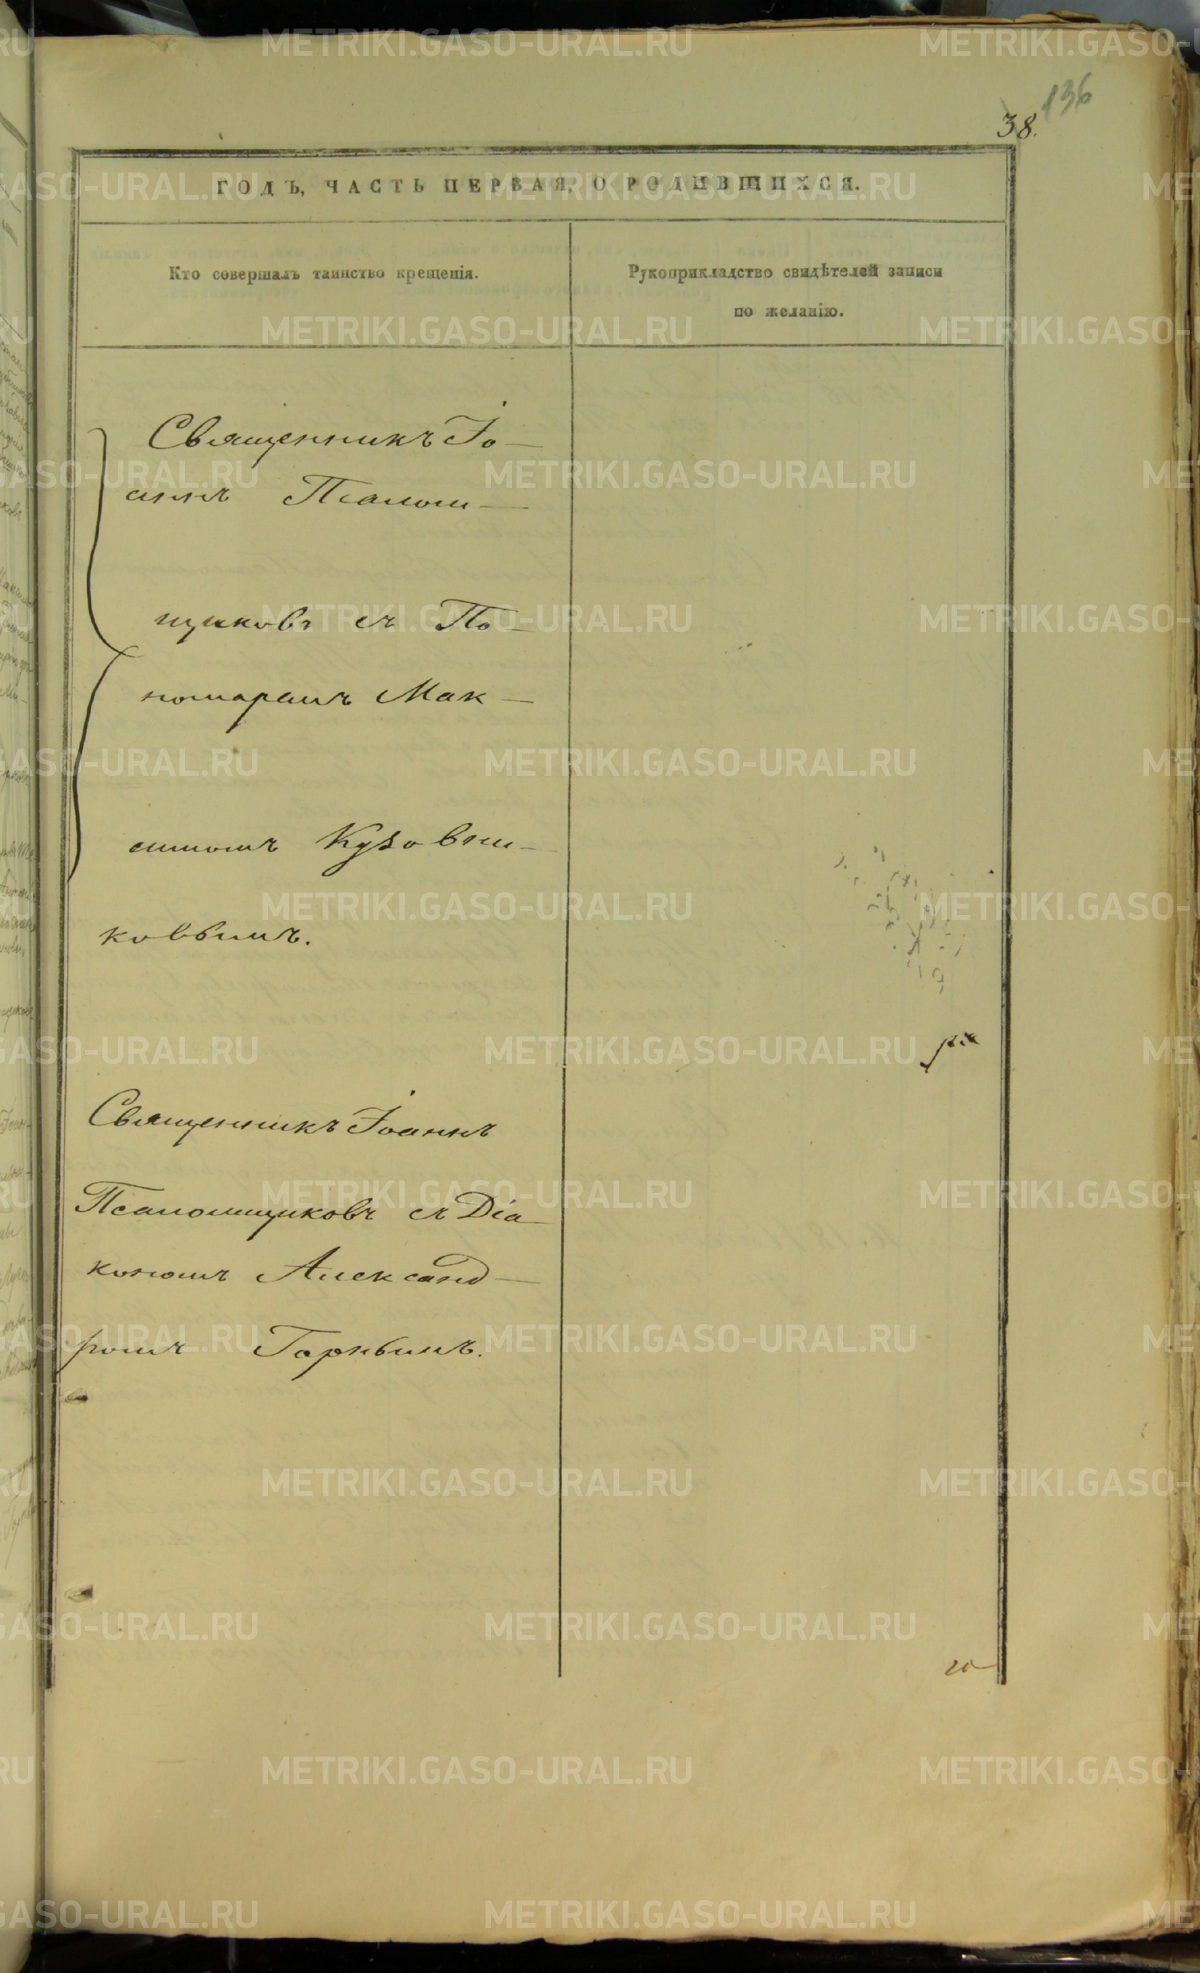 136
38.
ГОДЪ, ЧАСТЬ ПЕРВАЯ, О РОДИВШИХСЯ.
Кто совершалъ таинство крещенія.
Рукоприкладство свидѣтелей записи
по желанію.
Священникъ Іо-
аннъ Псаломщ-
щиковъ съ По-
номаремъ Мак-
симомъ Кузовни-
ковымъ.
Священникъ Іоаннъ
Псаломщиковъ съ Діа-
кономъ Александ-
ромъ Горнымъ.
METRIKI.GASO-URAL.RU